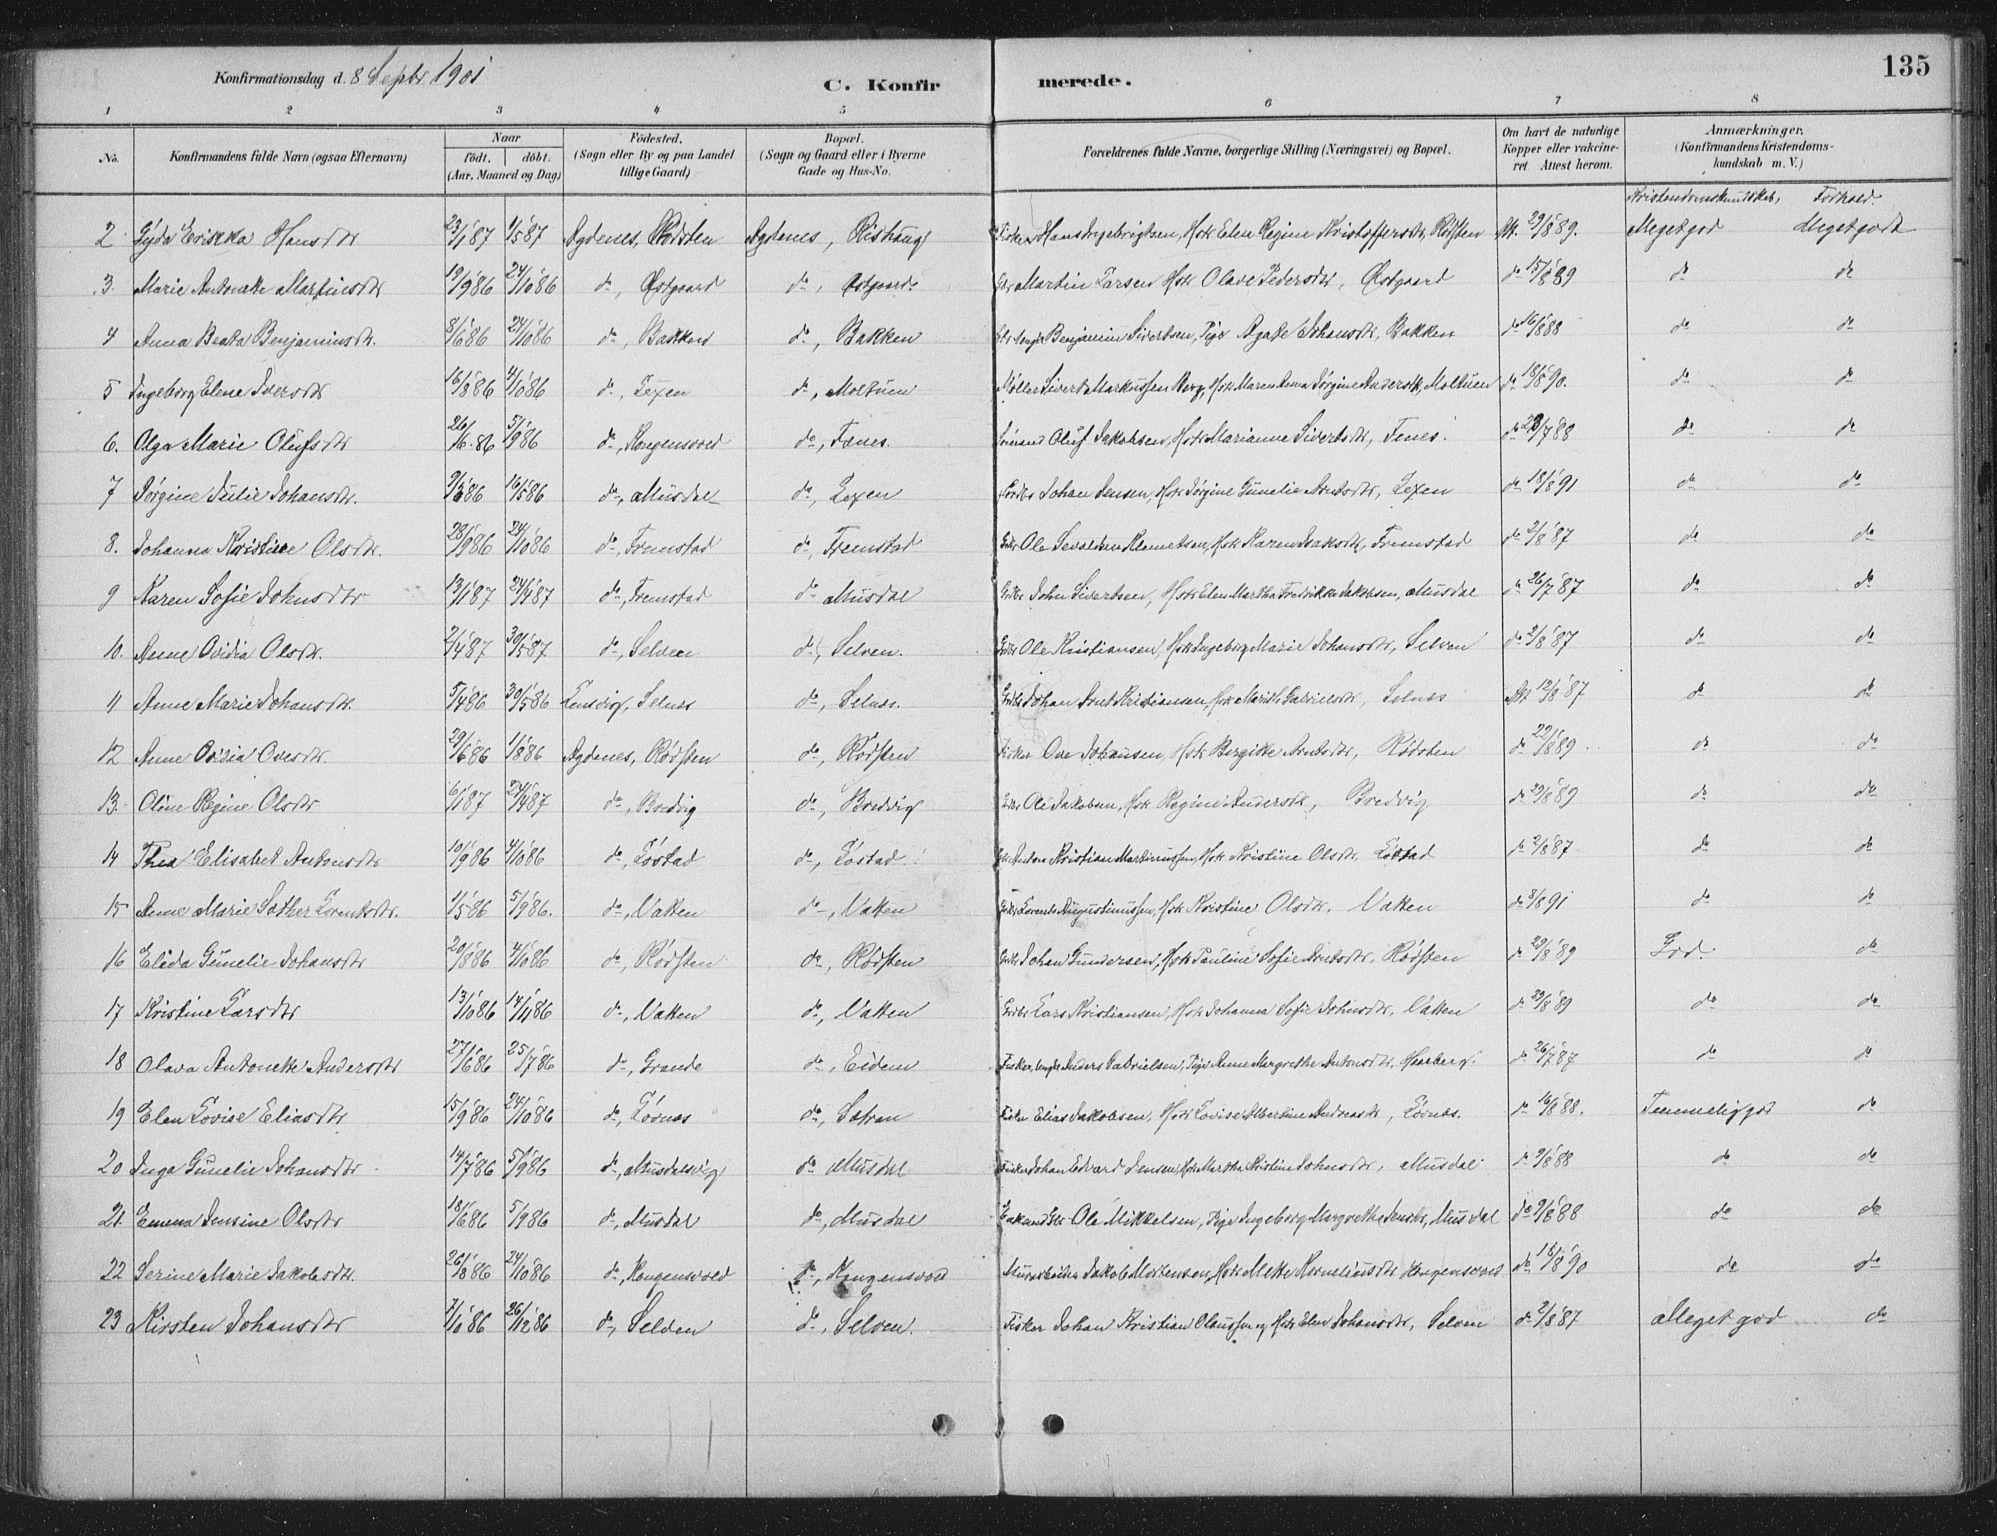 Konfirmationsdag d. 8 Septbr 1901
C. Konfirmerede.
135
1 2 3 4 5 6 7 8
No. Konfirmandens fulde Navn (ogsaa Efternavn) Naar födt. döbt. (Aar, Maaned og Dag) Födested. (Sogn eller By og paa Landet tillige Gaard) Bopæl. (Sogn og Gaard eller i Byerne Gade og Hus-No. Forældrenes fulde Navne, borgerlige Stilling (Næringsvei) og Bopæl. Om havt de naturlige Kopper eller vakcineret Attest herom. Anmærkninger. (Konfirmandens Kristendomskundskab m. V.)
Kristendomskundskab, Forhold
2. Gyda Erikka Hansdtr 23/1 87 1/5 87 Agdenes, Rödsten Agdenes, Rishaug Fisker Hans Ingebrigtsen, Hstr Elen Regine Kristoffersdtr, Rødsten Att. 29/8 89. Megetgod Megetgodt
3. Marie Antonette Martinsdtr 19/9 86 24/10 86 do, Østgaard do, Østgaard. Gbr Martin Larsen Hstr Olave Pedersdtr, Østgaard do 15/8 89 do do
4 Anna Beata Benjaminsdtr. 8/6 86 24/10 86 do, Bakken do, Bakken Benjamin Sivertsen, Pige Agate Johansdtr, Bakken do 16/8 88 do do
5 Ingeborg Elene Siversdtr 16/8 86 4/10 86 do, Lexen do, Moltuen Møller Sivert Markussen Berg, Hstr Maren Anna Jørgine Andersdtr, Moltuen do 18/8 90. do do
6. Olga Marie Olufsdtr 26/6 86 5/9 86 do, Kongensvold do, Fænes. Sömand Oluf Jakobsen, Hstr Marianne Sivertsdtr, Fenes. do 23/7 88 do do
7 Jørgine Julie Johansdtr. 9/3 86 16/5 86 do, Musdal do, Lexen Gbr Johan Jensen, Hstr Jørgine Gunelie Arntsdtr, Lexen do 18/8 91 do do
8. Johanna Kristine Olsdtr. 28/9 86 24/10 86 do, Fremstad do, Fremstad Gbr Ole Sevaldsen Klemetsen, Hstr Karen Isaksdtr, Fremstad do 2/8 87 do do
9 Karen Sofie Johnsdtr 13/1 87 24/4 87 do, Fremstad do Musdal Gbr John Sivertsen, Hstr Elen Martha Fredrikke Jakobsen, Musdal do 26/7 87 do do
10. Anne Ovidia Olsdtr. 2/4 87 30/5 87 do, Selven do, Selven. Gbr Ole Kristiansen, Hstr Ingeborg Marie Johansdtr, Selven do 2/8 87 do do
11 Anne Marie Johansdtr. 5/4 86 30/5 86 Lensvig, Selnes do, Selnes. Gbr Johan Arnt Kristiansen, Hstr Marith Gabrielsdtr, Selnes Att 12/8 87 do do
12 Anne Ovidia Ovesdtr. 29/6 86 1/8 86 Agdenes, Rødsten do, Rødsten Fisker Ove Johansen, Hstr Bergitte Arntsdtr, Rødsten do 29/8 89. do do
13. Oline Regine Olsdtr 6/1 87 24/4 87 do, Bredvig do, Bredvig Gbr Ole Jakobsen, Hstr Regine Andersdtr, Bredvig do 29/8 89 do do
14 Thea Elisabet Antonsdtr 10/9 86 4/10 86 do, Løstad do, Løstad Gbr Anton Kristian Martinussen, Hstr Kristine Olsdtr. Løstad do 2/8 87 do do
15 Anne Marie Sæther Lorentsdtr. 1/5 86 5/9 86. do, Vatten do, Vatten Gbr Lorents Augustinussen, Hstr Kristine Olsdtr. Vatten do 8/8 91 do do
16 Elida Gunelie Johansdtr 20/8 86 4/10 86 do, Rødsten do, Rødsten Gbr Johan Gundersen, Hstr Pauline Sofie Arntsdtr. Rødsten do 29/8 89 God. do
17 Kristine Larsdtr 13/10 86 14/11 86 do, Vatten do, Vatten Gbr Lars Kristiansen, Hstr Johanna Sofie Johnsdtr, Vatten do 29/8 89 do do
18 Olava Antonette Andersdtr 27/6 86 25/7 86 do, Grande do, Eidem Fisker, Ungk. Anders Gabrielsen, Pige Anne Margrethe Antonsdtr, do 26/7 87 do do
19 Elen Lovise Eliasdtr 15/9 86 24/10 86 do, Lövnes do, Sætran Fisker Elias Jakobsen, Hstr Lovise Albertine Andreasdtr, Lövnes. do 16/8 88. Temmelig god do
20 Inga Gunelie Johansdtr 14/7 86 5/9 86 do, Musdalsvig do Musdal Fisker Johan Edvard Jensen, Hstr Martha Kristine Johnsdtr, Musdal do 9/8 88 do do
21. Emma Jensine Olsdtr 18/6 86 5/9 86 do, Musdal do, Musdal Enkemand Ole Mikkelsen, Pige Ingeborg Margrethe Jensdtr, Musdal do 9/8 88 do do
22 Serine Marie Jakobsdtr. 26/8 86 24/10 86 do, Kongensvold do, Kongensvold Jakob Mortensen, Hstr Mette Korneliusdtr Kongensvold do 18/8 90 do do
23 Kirsten Johansdtr 7/10 86 26/12 86 do, Selven do, Selven. Fisker Johan Kristian Olaussen og Hstr Elen Johansdtr, Selven do 2/8 87 Meget god do